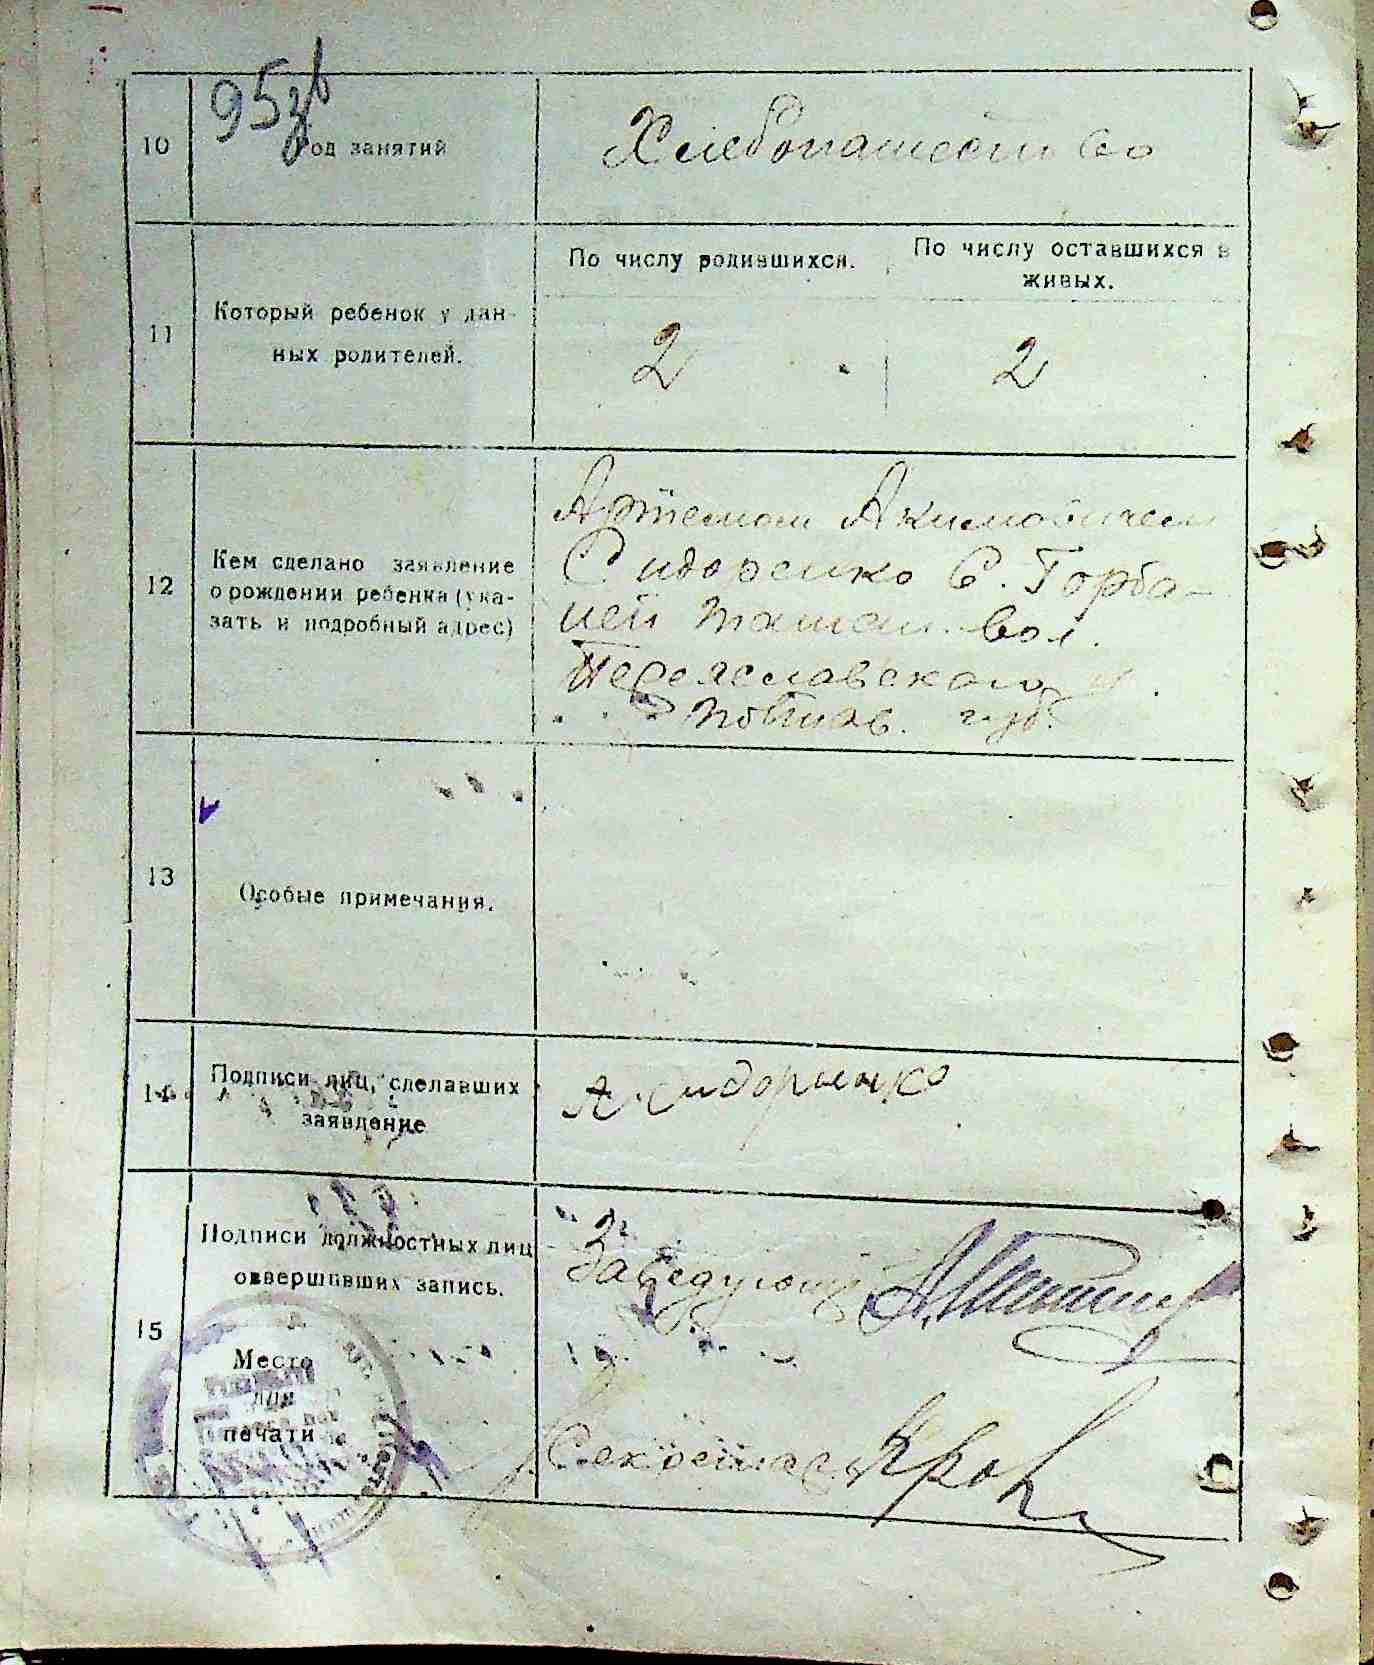 95зв
10
Род занятий
Хлебопашество
11
Который ребенок у дан-
ных родителей.
По числу родившихся.
По числу оставшихся в
живых.
2
2
12
Кем сделано заявление
о рождении ребенка (ука-
зать и подробный адрес)
Артемом Акимовичем
Сидоренко С. Горба-
ней Ташан. вол.
Переяславского у.
Полтав. губ.
13
Особые примечания.
14
Подписи лиц, сделавших
заявление
А. Сидорынко
15
Подписи должностных лиц
совершивших запись.
Заведующ
Место
для
печати
Секретарь